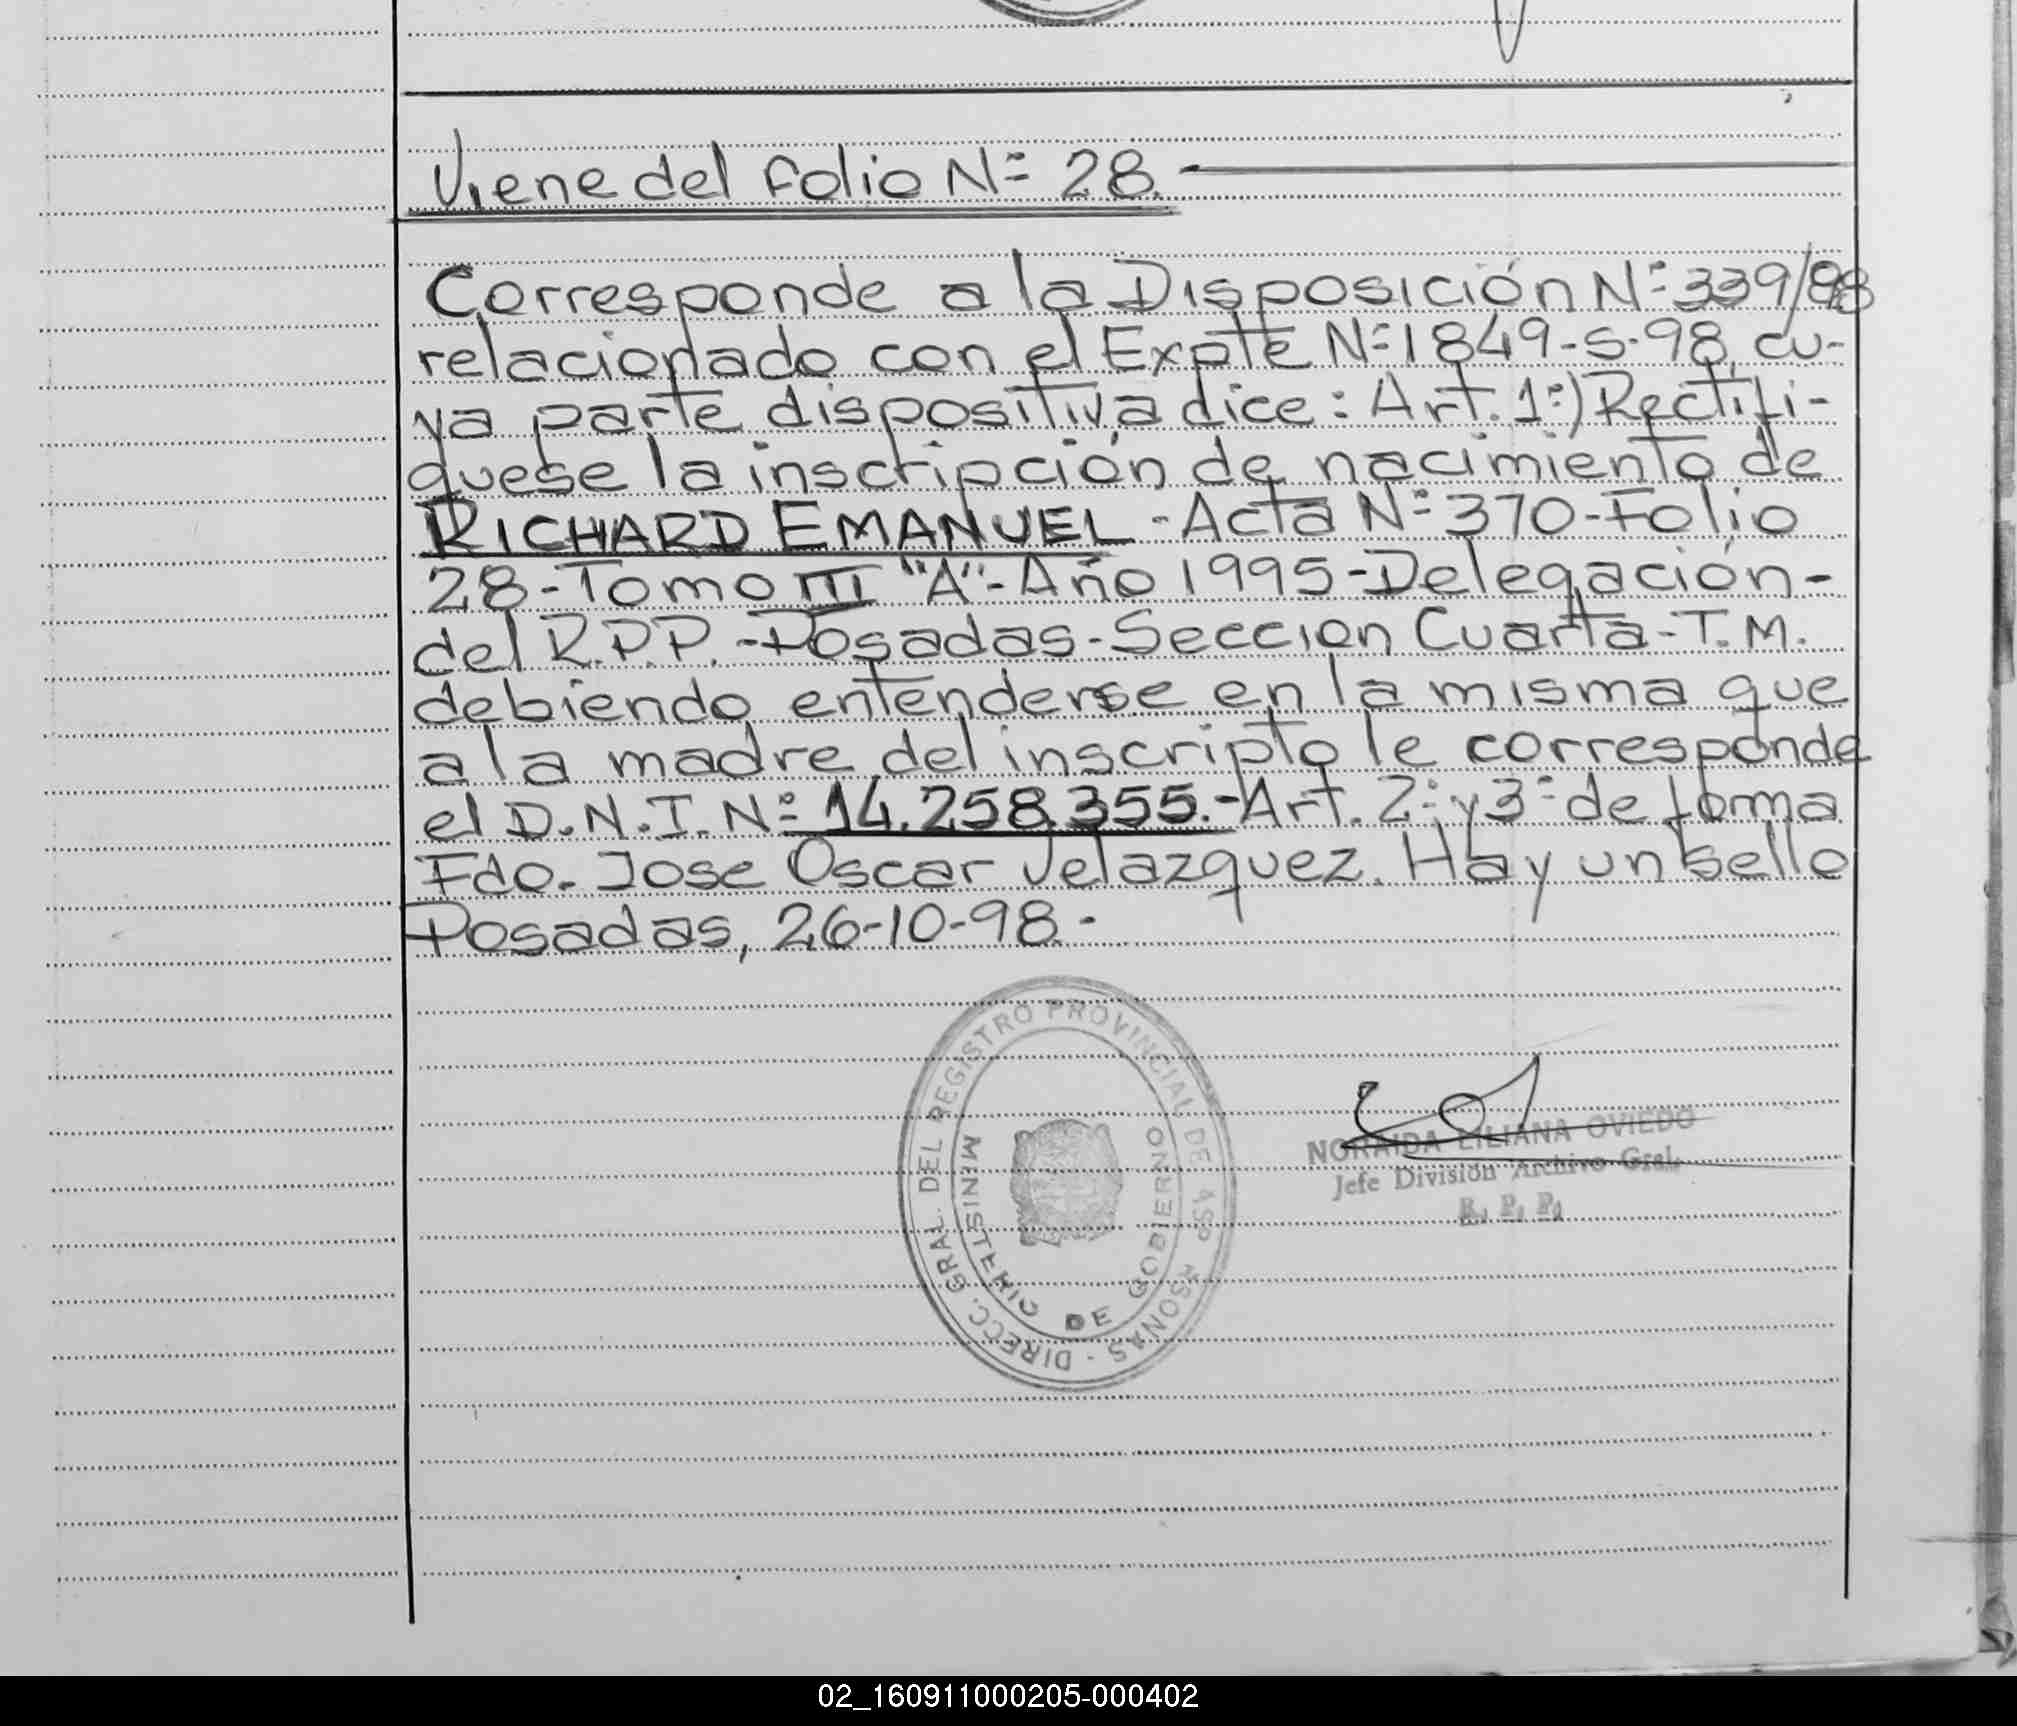 Viene del folio Nº 28.-
Corresponde a la Disposición Nº 339/98
relacionado con el Expte Nº 1849-S-98, cu-
ya parte dispositiva dice: Art. 1º) Rectifi-
quese la inscripción de nacimiento de
RICHARD EMANUEL - Acta Nº 370 - Folio
28 - Tomo III "A" - Año 1995 - Delegación -
del R.P.P. - Posadas - Seccion Cuarta - T.M.
debiendo entenderse en la misma que
a la madre del inscripto le corresponde
el D.N.I. Nº 14.258.355.- Art. 2º y 3º de forma
Fdo. Jose Oscar Velazquez. Hay un sello
Posadas, 26-10-98.-
DIRECC. GRAL. DEL REGISTRO PROVINCIAL DE LAS PERSONAS -
MINISTERIO DE GOBIERNO
NORAIDA LILIANA OVIEDO
Jefe División Archivo Gral.
R. P. P.
02_160911000205-000402